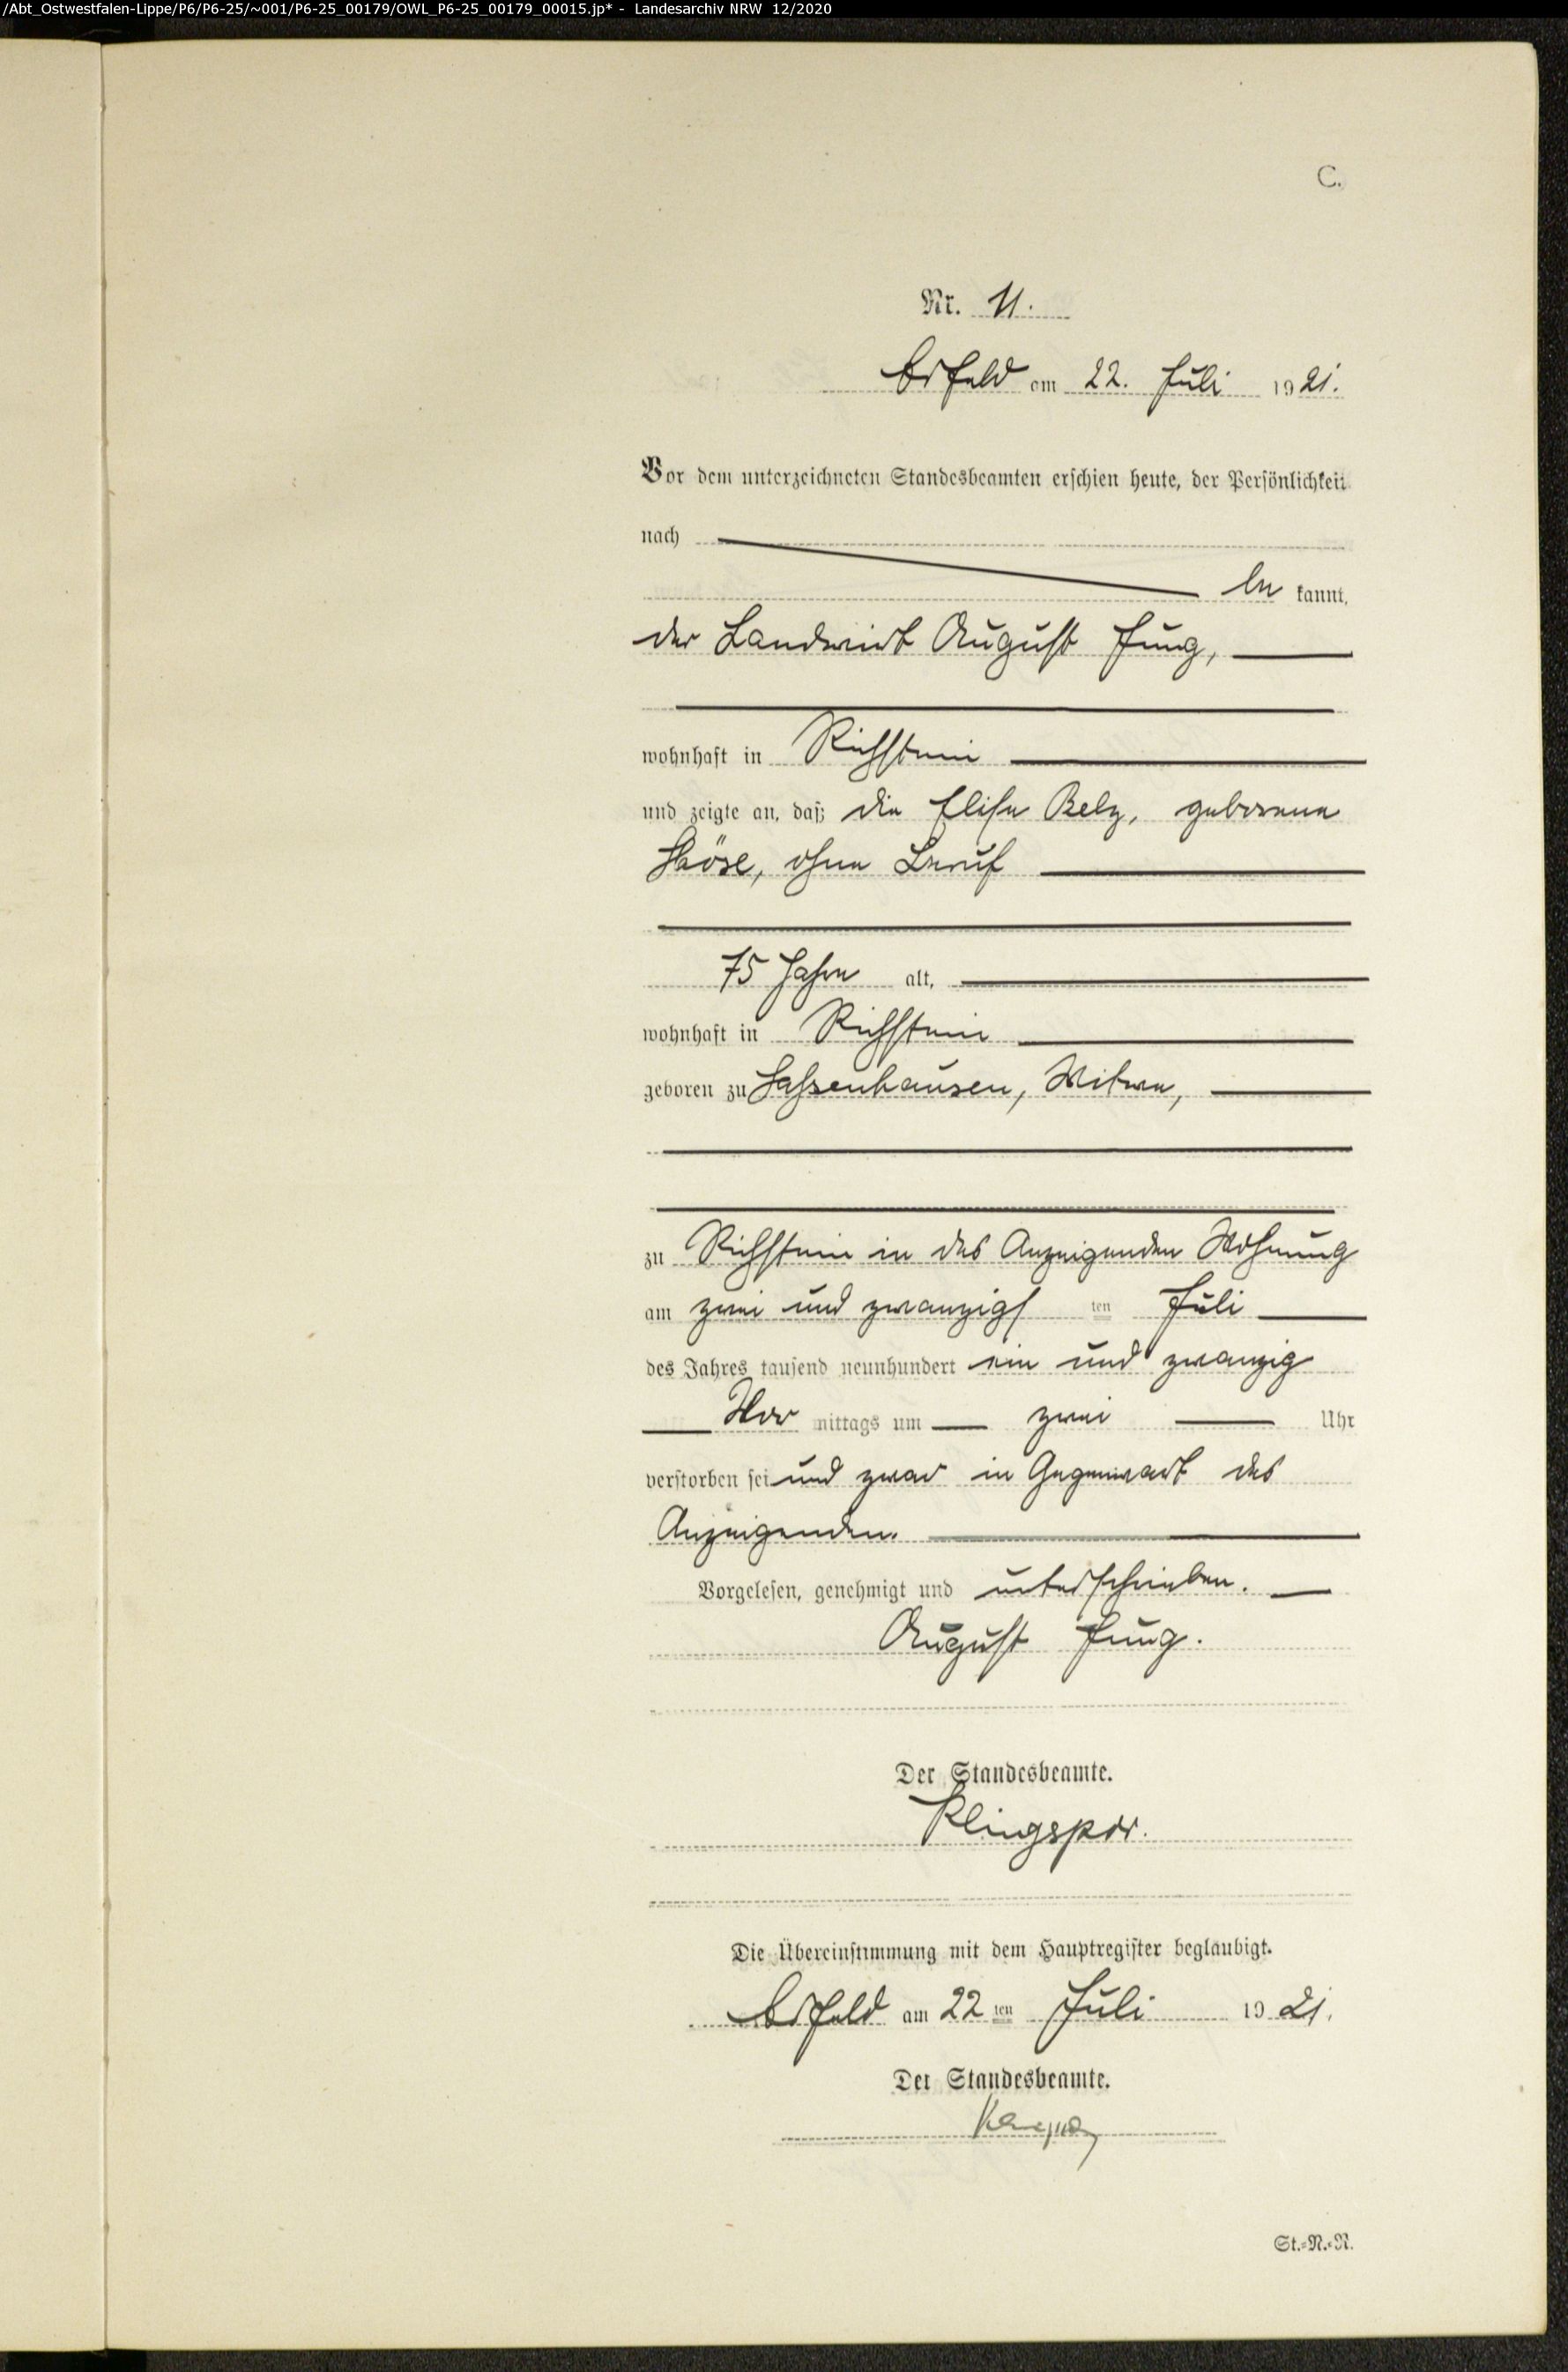 /Abt_Ostwestfalen-Lippe/P6/P6-25/~001/P6-25_00179/OWL_P6-25_00179_00015.jp* - Landesarchiv NRW 12/2020
C.
Nr. 11.
Arfeld am 22. Juli 1921.
Vor dem unterzeichneten Standesbeamten erschien heute, der Persönlichkeit
nach
be kannt,
der Landwirt August Jung,
wohnhaft in Richstein
und zeigte an, daß die Elise Belz, geborene
ohne Beruf
75 Jahre alt,
wohnhaft in Richstein
geboren zu Sassenhausen, Witwe,
zu Richstein in des Anzeigenden Wohnung
am zwei und zwanzigs ten Juli
des Jahres tausend neunhundert ein und zwanzig
Vor mittags um zwei Uhr
verstorben sei und zwar in Gegenwart des
Anzeigenden.
Vorgelesen, genehmigt und unterschrieben.
August Jung.
Der Standesbeamte.
Klingspor.
Die Übereinstimmung mit dem Hauptregister beglaubigt.
Arfeld am 22 ten Juli 1921.
Der Standesbeamte.
St.=R.=R.